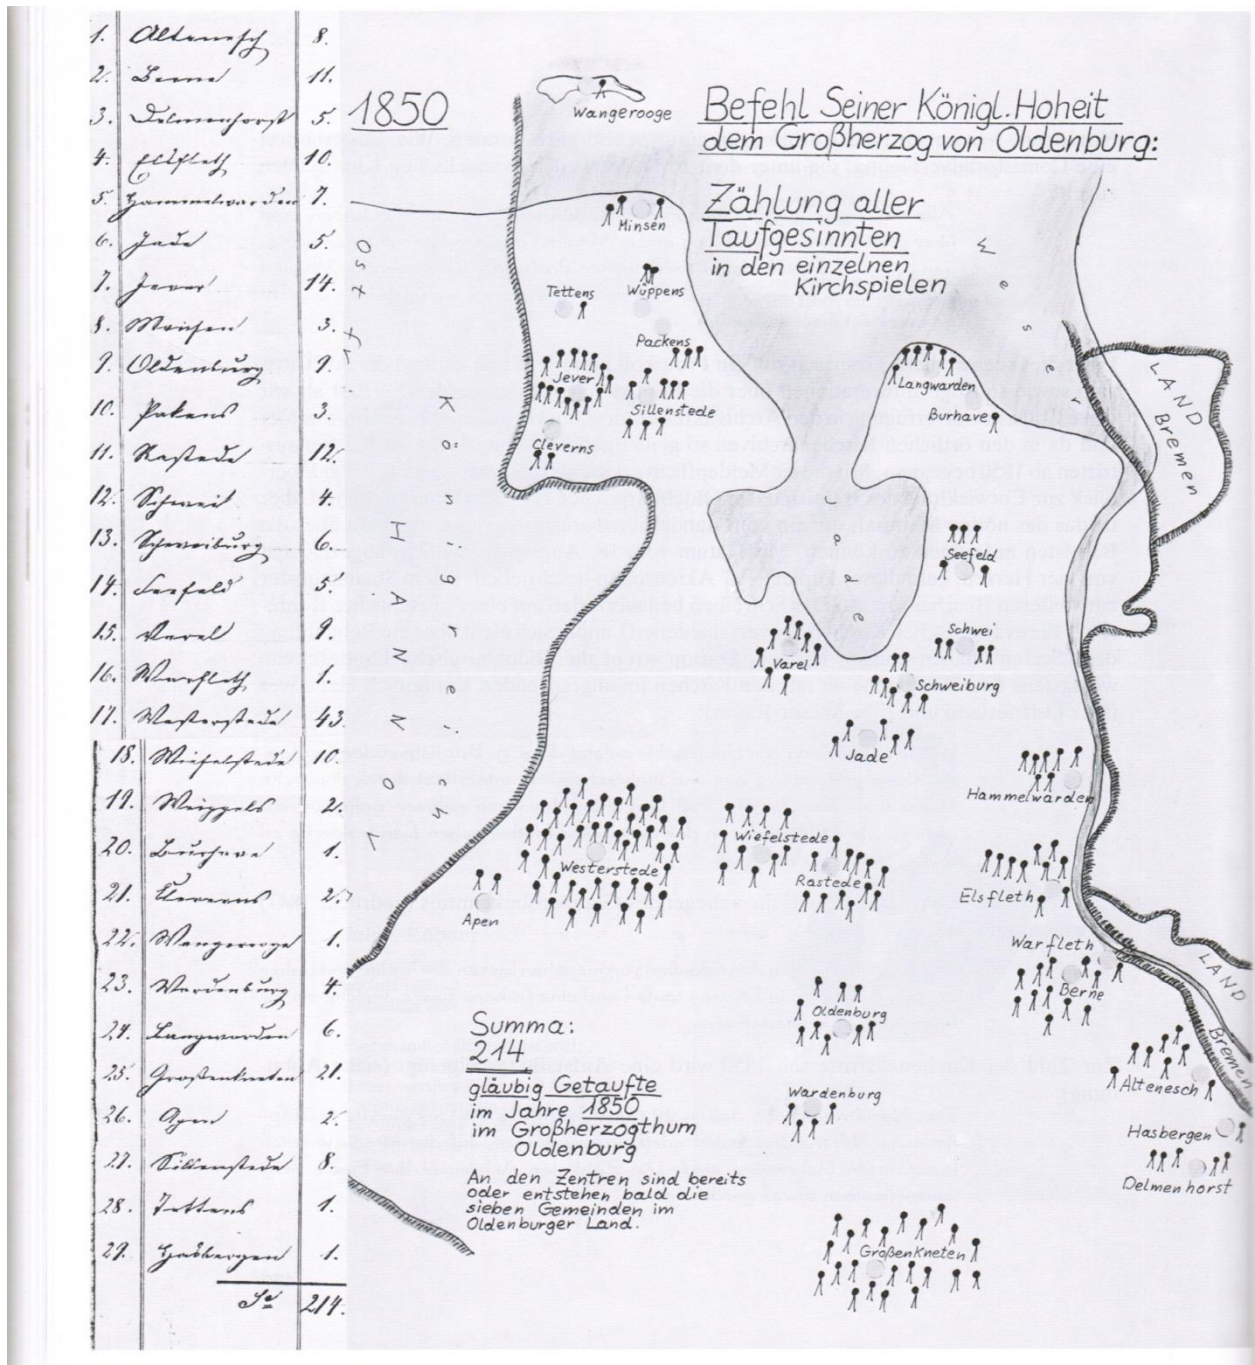 1. Altenesch 8.
2. Berne 11.
3. Delmenhorst 5.
4. Elsfleth 10.
5. Hammelwarden 7.
6. Jade 5.
7. Jever 14.
8. Minsen 3.
9. Oldenburg 9.
10. Pakens 3.
11. Rastede 12.
12. Schwei 4.
13. Schweiburg 6.
14. Seefeld 5.
15. Varel 9.
16. Warfleth 1.
17. Westerstede 43.
18. Wiefelstede 10.
19. Wüppels 2.
20. Burhave 1.
21. Cleverns 2.
22. Wangerooge 1.
23. Wardenburg 4.
24. Langwarden 6.
25. Großenkneten 21.
26. Apen 2.
27. Sillenstede 8.
28. Tettens 1.
29. Hasbergen 1.
Sa 214.
1850
Befehl Seiner Königl. Hoheit
dem Großherzog von Oldenburg:
Zählung aller
Taufgesinnten
in den einzelnen
Kirchspielen
Wangerooge
Minsen
Ostfr
Königreich
HANNOV
Weser
Tettens
Wüppens
Packens
Jever
Sillenstede
Cleverns
Langwarden
Burhave
LAND
Bremen
Jade
Seefeld
Schwei
Varel
Schweiburg
Jade
Hammelwarden
Wiefelstede
Westerstede
Rastede
Apen
Elsfleth
Warfleth
Berne
LAND
Bremen
Oldenburg
Wardenburg
Altenesch
Hasbergen
Delmenhorst
Großenkneten
Summa:
214
gläubig Getaufte
im Jahre 1850
im Großherzogthum
Oldenburg
An den Zentren sind bereits
oder entstehen bald die
sieben Gemeinden im
Oldenburger Land.